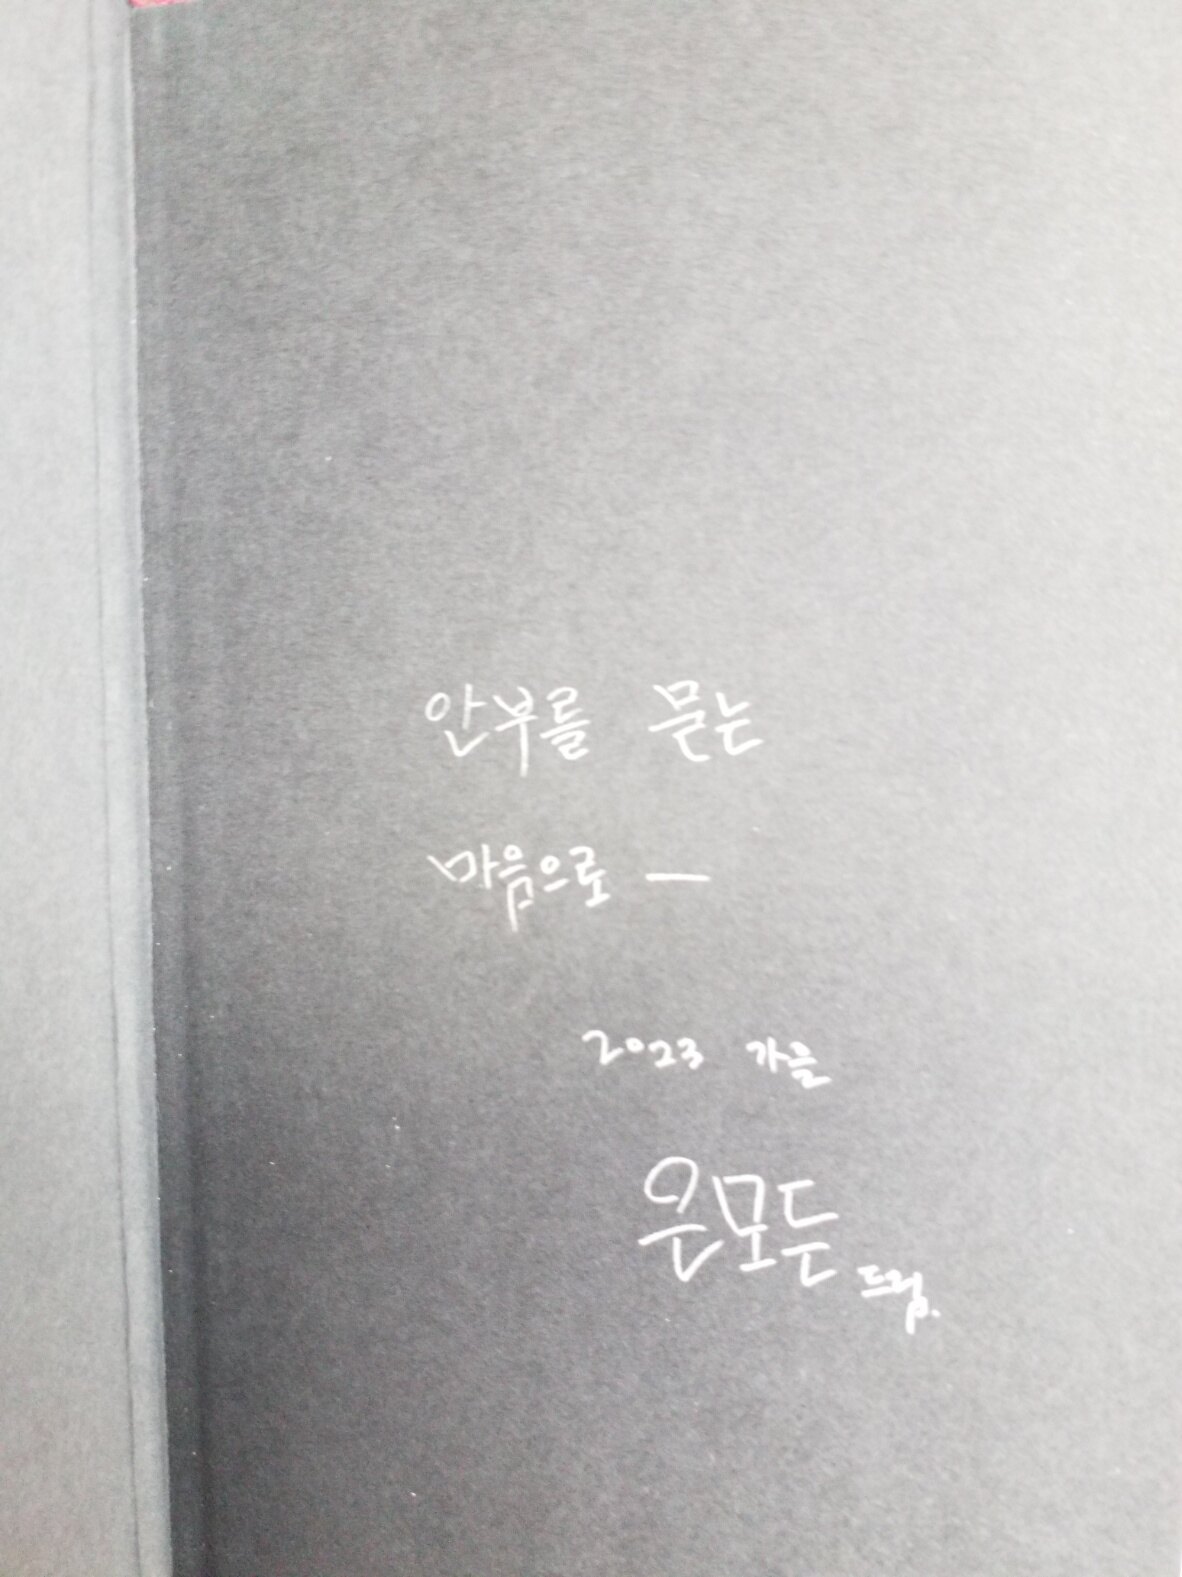 안부를 묻는
마음으로 —
2023 가을
은모든 드림.